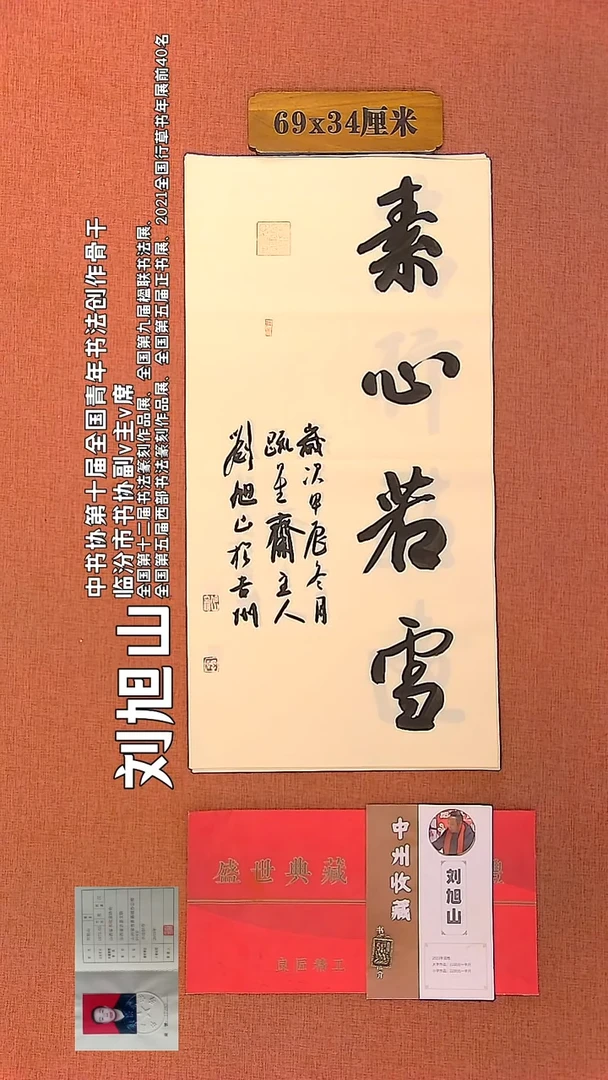 69x34厘米
素心若雪
歲次甲辰冬月
疏至齋主人
劉旭山於吉州
刘旭山
中书协第十届全国青年书法创作骨干
临汾市书协副v主v席
全国第十二届书法篆刻作品展、全国第九届楹联书法展、
全国第五届西部书法篆刻作品展、全国第五届正书展、2021全国行草书年展前40名
盛世典藏
良匠精工
中州收藏
刘旭山